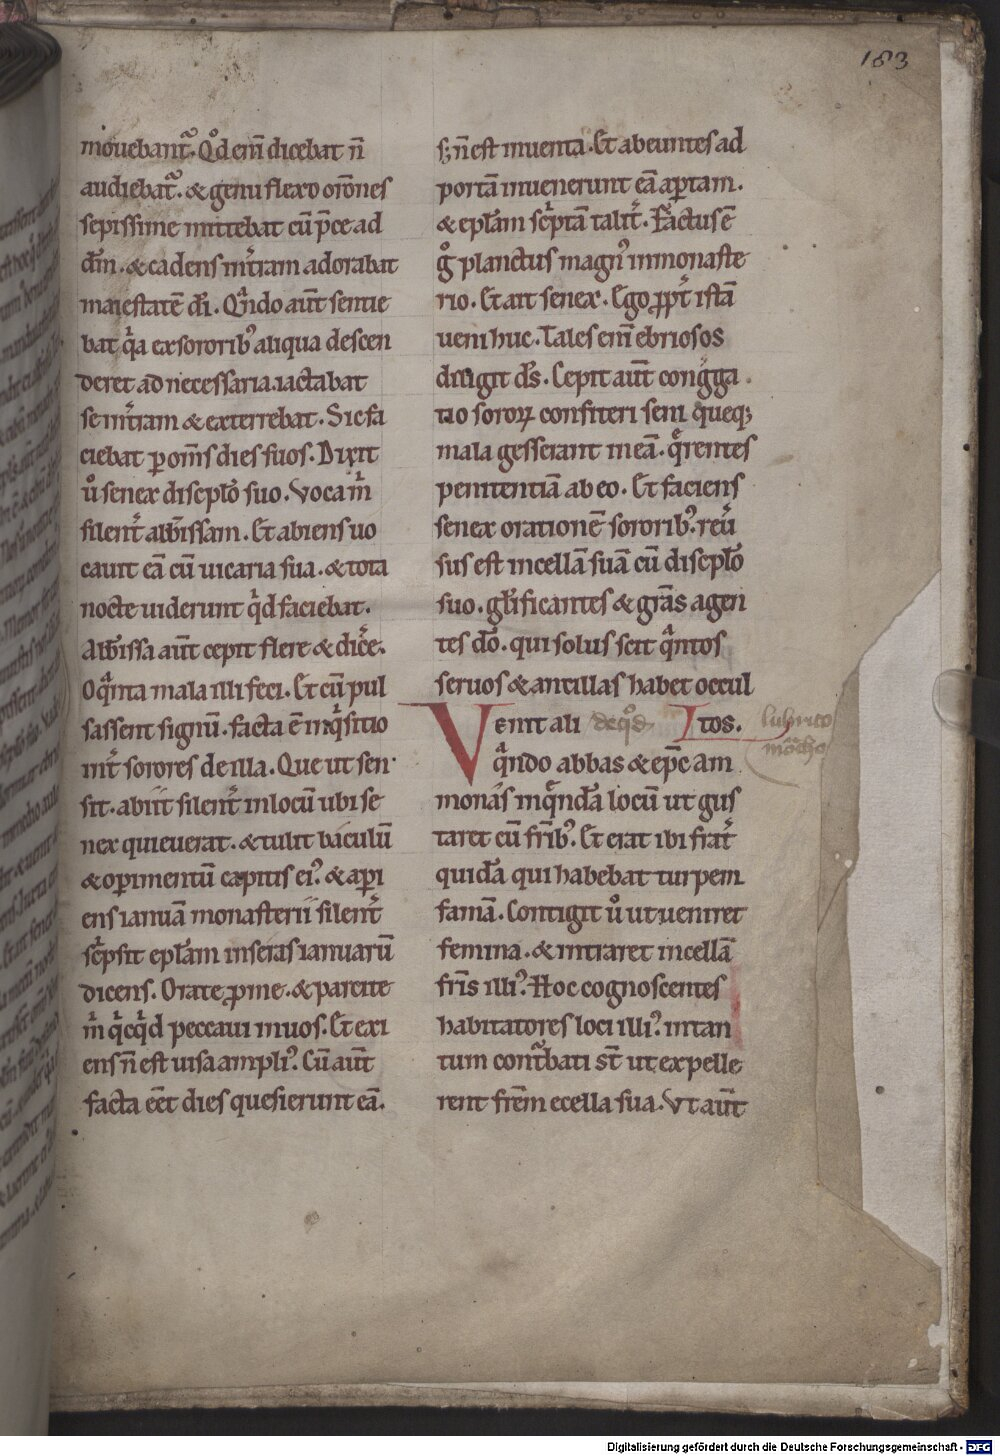 183
mouebant᷑. Qͦd eni̅ dicebat n̅
audiebat᷑. & genu flexo or̅ones
sepissime mittebat cu̅ p̅ce ad
dn̅m. & cadens i̅ tr̅am adorabat
maiestate̅ dn̅i. Qn̅do aut̅ sentie
bat qᷓa ex sororibꝰ aliqua descen
deret ad necessaria. iactabat
se i̅ tr̅am & exterrebat. Sic fa
ciebat ꝑ om̅s dies suos. Dixit
uͦ senex discip̅lo suo. Voca m̅
silent̅ abb̅issam. Et abiens uo
cauit ea̅ cu̅ uicaria sua. & tota
nocte uiderunt qͥd faciebat.
Abb̅issa aut̅ cepit flere & dic̅e.
O qᷓnta mala illi feci. Et cu̅ pul
sassent signu̅. facta e̅ inqͥsitio
int̅ sorores de illa. Que ut sen
sit. abiit silent̅ in locu̅ ubi se
nex quieuerat. & tulit baculu̅
& operimentu̅ capitis eiꝰ. & aperi
ens ianua̅ monasterii silent̅
scͥpsit epl̅am in seras ianuaru̅
dicens. Orate ꝓ me. & parcite
m̅ qͥcqͥd peccaui in uos. Et exi
ens n̅ est uisa ampliꝰ. Cu̅ aut̅
facta e̅et dies quesierunt ea̅.
sꝫ n̅ est inuenta. Et abeuntes ad
porta̅ inuenerunt ea̅ aꝑtam.
& epl̅am scͥpta̅ talit̅. Factus e̅
gͦ planctus magnꝰ in monaste
rio. Et ait senex. Ego ꝓpt̅ ista̅
ueni huc. Tales eni̅ ebriosos
diligit ds̅. Cepit aut̅ cong̅ga
tio soroꝝ confiteri seni queqꝫ
mala gesserant in ea̅. qͣrentes
penitentia̅ ab eo. Et faciens
senex oratione̅ sororibꝰ. reu̅
sus est in cella̅ sua̅ cu̅ discip̅lo
suo. gl̅ificantes & gr̅as agen
tes d̅o. qui solus scit qᷓntos
seruos & ancillas habet occul
Venit ali de eqͦd Itos. lubrico
qᷓndo abbas & ep̅c am mo̅cho
monas in qᷓnda̅ locu̅ ut gus
taret cu̅ fr̅ibꝰ. Et erat ibi frat̅
quida̅ qui habebat turpem
fama̅. Contigit uͦ ut ueniret
femina. & intraret in cella̅
fr̅is illiꝰ. Hoc cognoscentes
habitatores loci illiꝰ. in tan
tum cont᷑bati st̅ ut expelle
rent fr̅em e cella sua. Vt aut̅
Digitalisierung gefördert durch die Deutsche Forschungsgemeinschaft - DFG